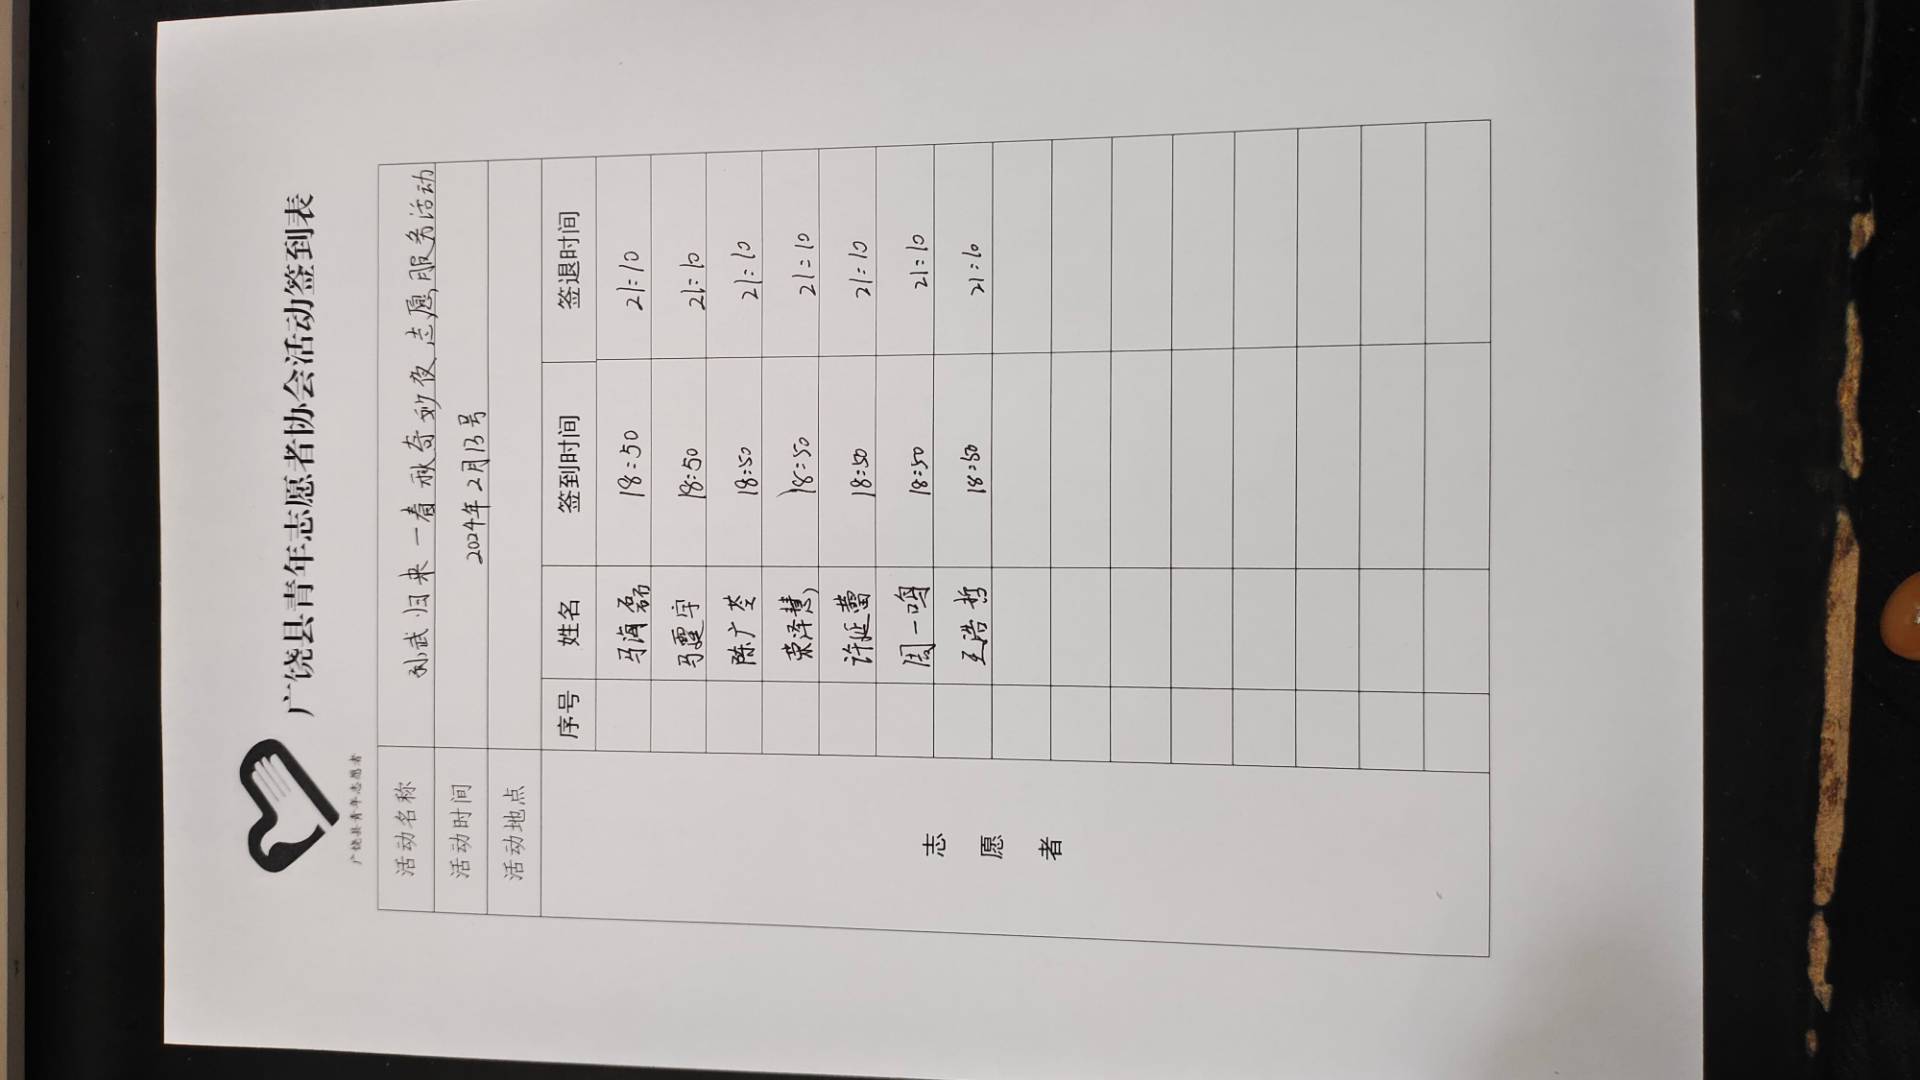 广饶县青年志愿者
广饶县青年志愿者协会活动签到表
活动名称 孙武归来一春秋奇妙夜志愿服务活动
活动时间 2024年2月13号
活动地点
志愿者
序号 姓名 签到时间 签退时间
马海磊 18:50 21:10
马霆宇 18:50 21:10
陈广苓 18:50 21:10
荣泽慧 18:50 21:10
许延蕾 18:50 21:10
周一鸣 18:50 21:10
王浩哲 18:50 21:10